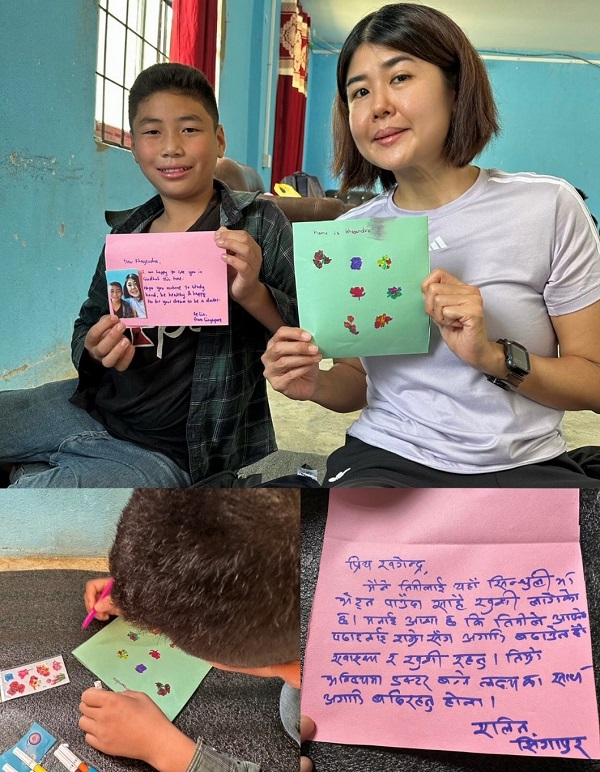 Dear Khagendra,
I am happy to see you in
Sindhuli this time.
Hope you continue to study
hard, be healthy & happy
to
for your dream to be a doctor.
from Singapore
Name is Khagendra
प्रिय खगेन्द्र,
मैले तिमीलाई यहाँ सिन्धुली मा
भेट्न पाउँदा साह्रै खुशी लागेको
छ। मलाई आशा छ कि तिमीले आफ्नो
पढाइलाई राम्रो सँग अगाडि बढाउने छौ
स्वास्थ्य र खुशी रहनु। तिम्रो
भविष्यमा डाक्टर बन्ने लक्ष्य का साथ
अगाडि बढिरहनु होला।
सिंगापुर